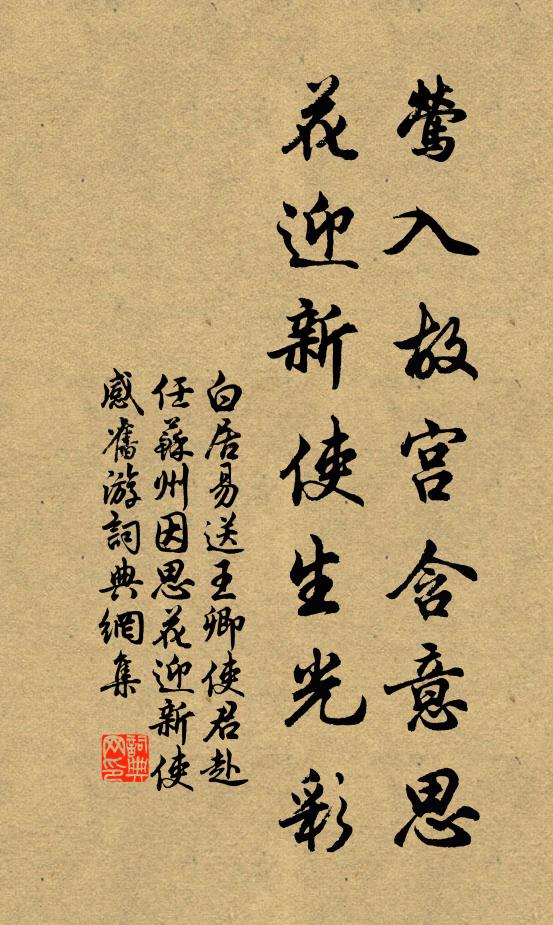 鶯入故宮含意思
花迎新使生光彩
白居易送王卿使君赴
任蘇州因思花迎新使
感舊游詞典網集
詞典网印